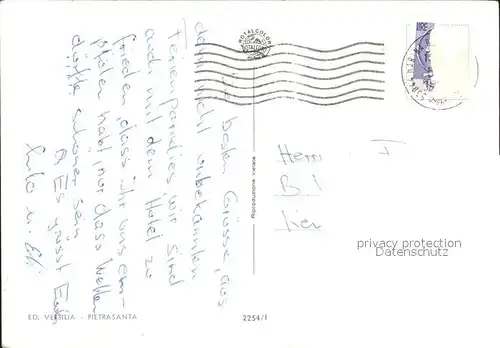 die besten Grüsse, aus
dem nicht unbekannten
Ferienparadies, wir sind
auch mit dem Hotel zu
frieden, dass Ihr uns em-
pfohlen habt, nur das Wetter
dürfte schöner sein
Es grüsst Euch
u.
ROTALCOLOR
Riproduzione vietata
Herrn F
B I
privacy protection
Datenschutz
ED. VERSILIA - PIETRASANTA
2254/I